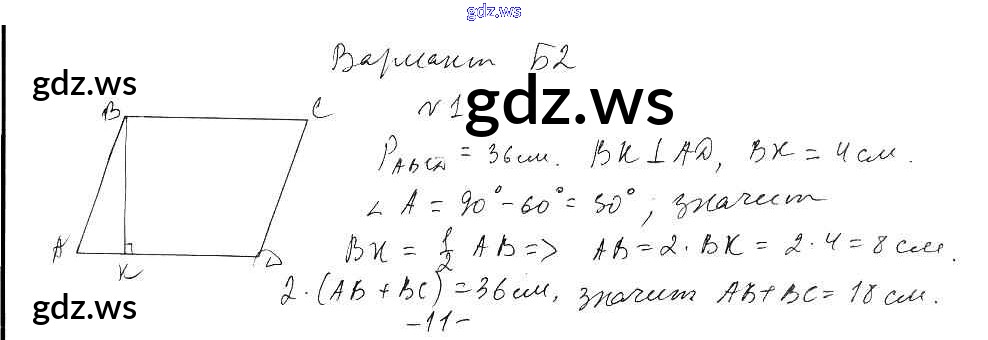 gdz.ws
Вариант Б2
gdz.ws
B C
№1
gdz.ws
P_ABCD = 36 см. BK ⊥ AD, BK = 4 см.
∠A = 90° - 60° = 30°, значит
A K D
BK = 1/2 AB => AB = 2 · BK = 2 · 4 = 8 см.
2 · (AB + BC) = 36 см, значит AB + BC = 18 см.
gdz.ws
-11-